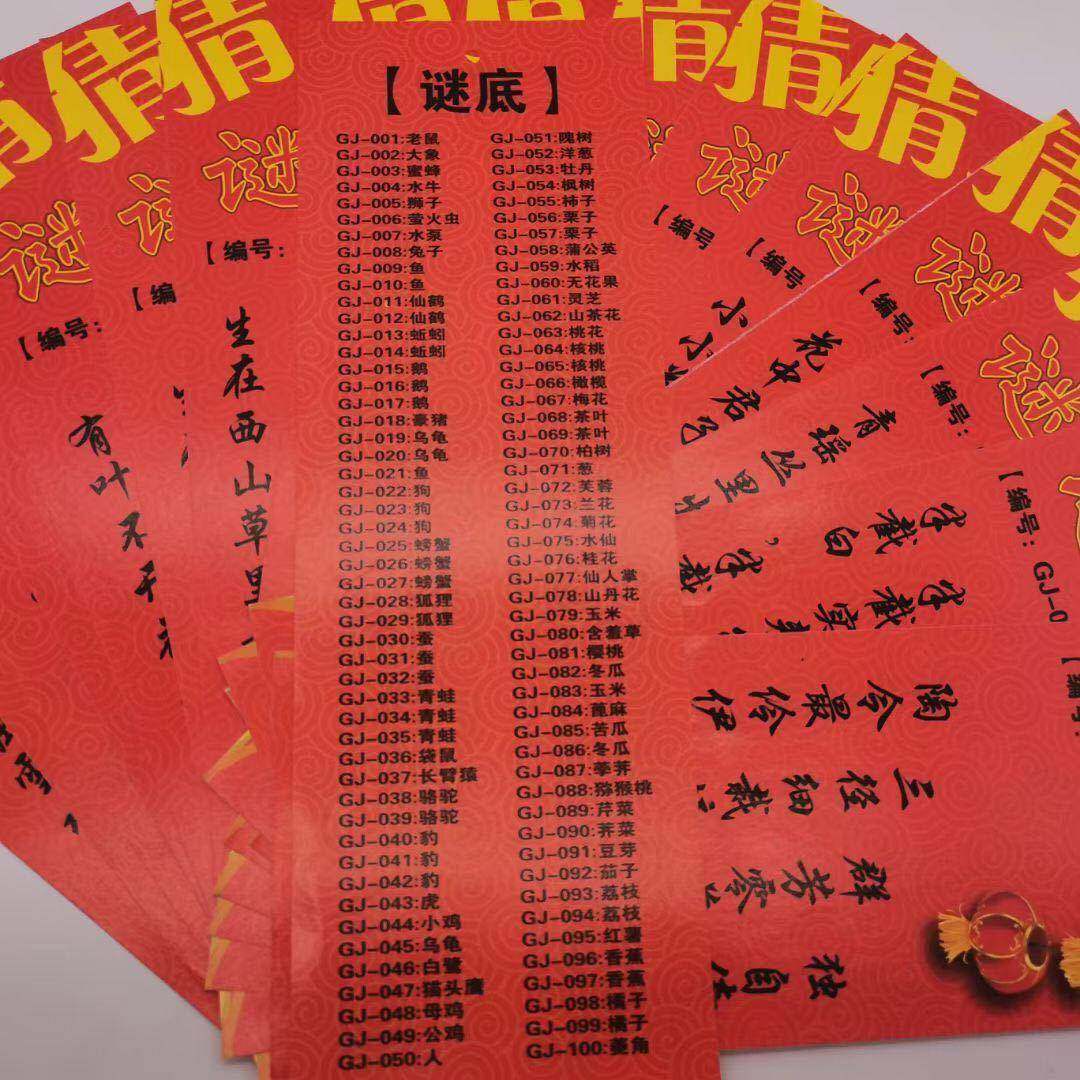 猜
猜
猜
猜
猜
谜
谜
谜
谜
谜
谜
谜
【编号:
有叶不开
【编
【编号:
生在西山草里
【谜底】
GJ-001:老鼠
GJ-002:大象
GJ-003:蜜蜂
GJ-004:水牛
GJ-005:狮子
GJ-006:萤火虫
GJ-007:水泵
GJ-008:兔子
GJ-009:鱼
GJ-010:鱼
GJ-011:仙鹤
GJ-012:仙鹤
GJ-013:蚯蚓
GJ-014:蚯蚓
GJ-015:鹅
GJ-016:鹅
GJ-017:鹅
GJ-018:豪猪
GJ-019:乌龟
GJ-020:乌龟
GJ-021:鱼
GJ-022:狗
GJ-023:狗
GJ-024:狗
GJ-025:螃蟹
GJ-026:螃蟹
GJ-027:螃蟹
GJ-028:狐狸
GJ-029:狐狸
GJ-030:蚕
GJ-031:蚕
GJ-032:蚕
GJ-033:青蛙
GJ-034:青蛙
GJ-035:青蛙
GJ-036:袋鼠
GJ-037:长臂猿
GJ-038:骆驼
GJ-039:骆驼
GJ-040:豹
GJ-041:豹
GJ-042:豹
GJ-043:虎
GJ-044:小鸡
GJ-045:乌龟
GJ-046:白鹭
GJ-047:猫头鹰
GJ-048:母鸡
GJ-049:公鸡
GJ-050:人
GJ-051:槐树
GJ-052:洋葱
GJ-053:牡丹
GJ-054:枫树
GJ-055:柿子
GJ-056:栗子
GJ-057:栗子
GJ-058:蒲公英
GJ-059:水稻
GJ-060:无花果
GJ-061:灵芝
GJ-062:山茶花
GJ-063:桃花
GJ-064:核桃
GJ-065:核桃
GJ-066:橄榄
GJ-067:梅花
GJ-068:茶叶
GJ-069:茶叶
GJ-070:柏树
GJ-071:葱
GJ-072:芙蓉
GJ-073:兰花
GJ-074:菊花
GJ-075:水仙
GJ-076:桂花
GJ-077:仙人掌
GJ-078:山丹花
GJ-079:玉米
GJ-080:含羞草
GJ-081:樱桃
GJ-082:冬瓜
GJ-083:玉米
GJ-084:蓖麻
GJ-085:苦瓜
GJ-086:冬瓜
GJ-087:荸荠
GJ-088:猕猴桃
GJ-089:芹菜
GJ-090:荠菜
GJ-091:豆芽
GJ-092:茄子
GJ-093:荔枝
GJ-094:荔枝
GJ-095:红薯
GJ-096:香蕉
GJ-097:香蕉
GJ-098:橘子
GJ-099:橘子
GJ-100:菱角
【编号
小小
【编号
花中君子
【编号:
青瑶丛里
【编号:
半截白
半截
【编号: GJ-0
陶令最怜伊
三径细栽
群芳零
独自